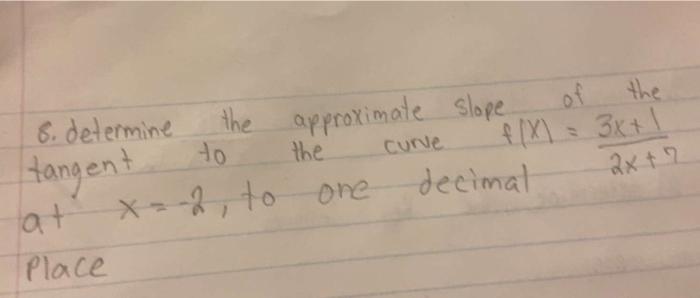 8. determine the approximate slope of the
tangent to the curve f(x) = 3x+1 / 2x+7
at x=-2, to one decimal
Place